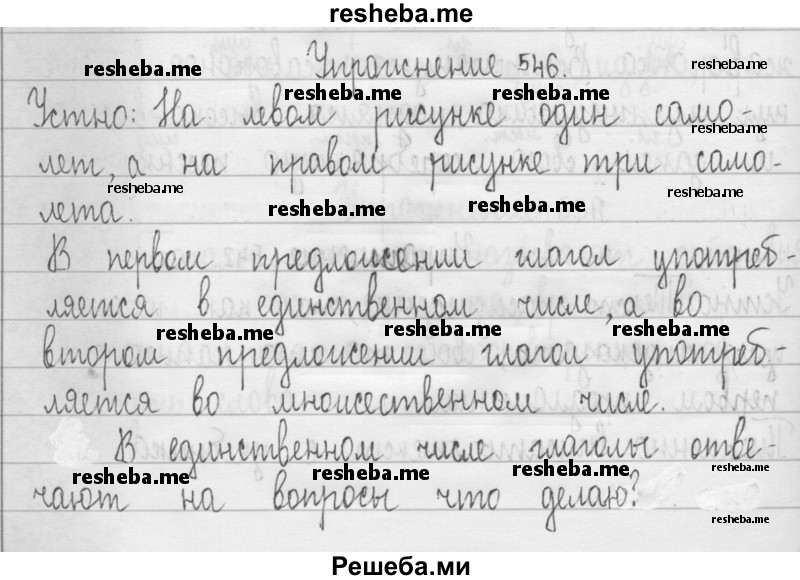 resheba.me
Упражнение 546.
resheba.me resheba.me
resheba.me resheba.me
Устно: На левом рисунке один само-
лет, а на правом рисунке три само-
resheba.me resheba.me resheba.me resheba.me
лета.
В первом предложении глагол употреб-
ляется в единственном числе, а во
resheba.me resheba.me resheba.me
втором предложении глагол употреб-
ляется во множественном числе.
В единственном числе глаголы отве-
resheba.me resheba.me resheba.me resheba.me
чают на вопросы что делаю?
resheba.me
Решеба.ми